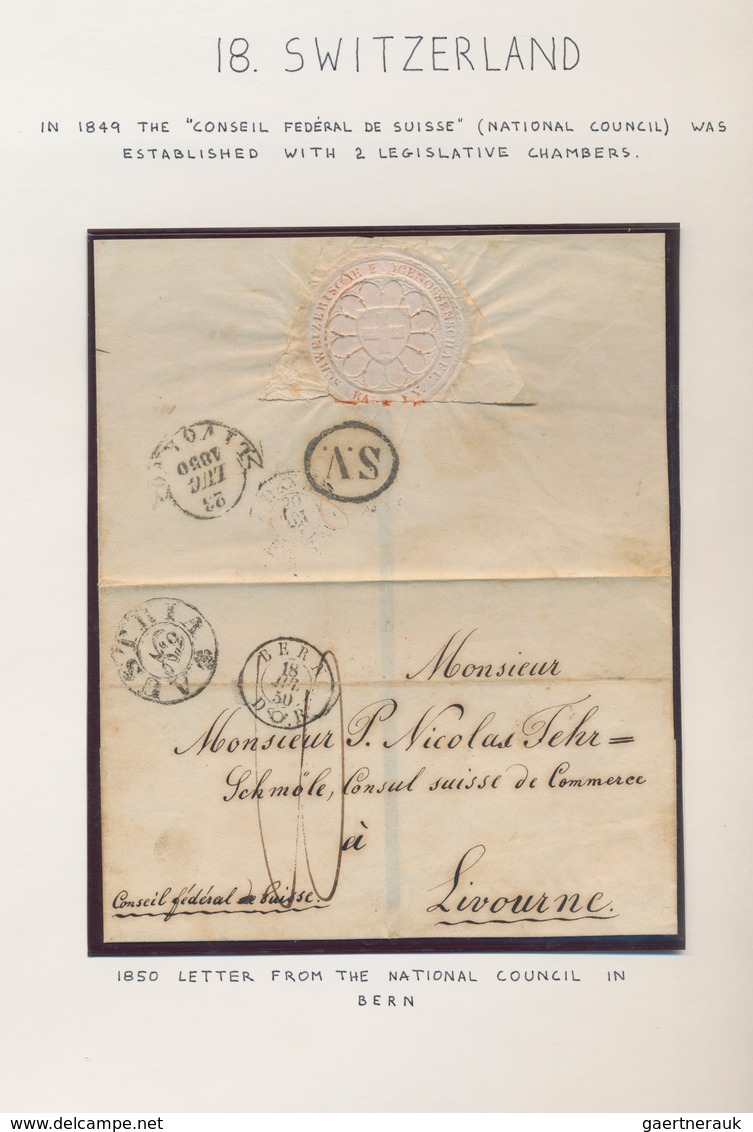 18. SWITZERLAND
IN 1849 THE "CONSEIL FEDÉRAL DE SUISSE" (NATIONAL COUNCIL) WAS
ESTABLISHED WITH 2 LEGISLATIVE CHAMBERS.
SCHWEIZERISCHE EIDGENOSSENSCHAFT.
LIVORNO
23
LUG
1850
S.V.
AUSTRIA
BERN
18
JUL
50
D.R.
Monsieur
Monsieur P. Nicolas Fehr=
Schmöle, Consul suisse de Commerce
à
Livourne.
Conseil fédéral de Suisse.
1850 LETTER FROM THE NATIONAL COUNCIL IN
BERN
gaertnerauk